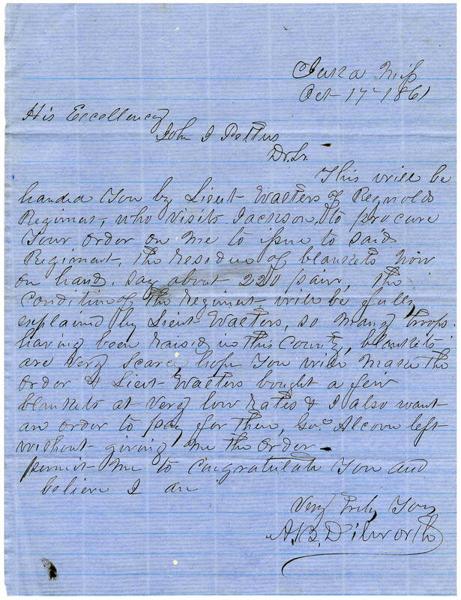 Iuka Miss
Oct 17th 1861
His Excellency
John J Pettus
Dr Sr
This will be
handed You by Lieut Walters of Reynolds
Regiment, who visits Jackson, to procure
Your order on me to issue to said
Regiment, the residue of blankets now
on hand, say about 220 pair, the
condition of the Regiment will be fully
explained by Lieut Walters, so many troops
having been raised in this County, blankets
are very scarce, hope You will make the
order & Lieut Walters bought a few
blankets at very low rates & I also want
an order to pay for them, Alcorn left
without giving me the order
permit me to congratulate You and
believe I am
Very truly Yours
A. B. Dilworth